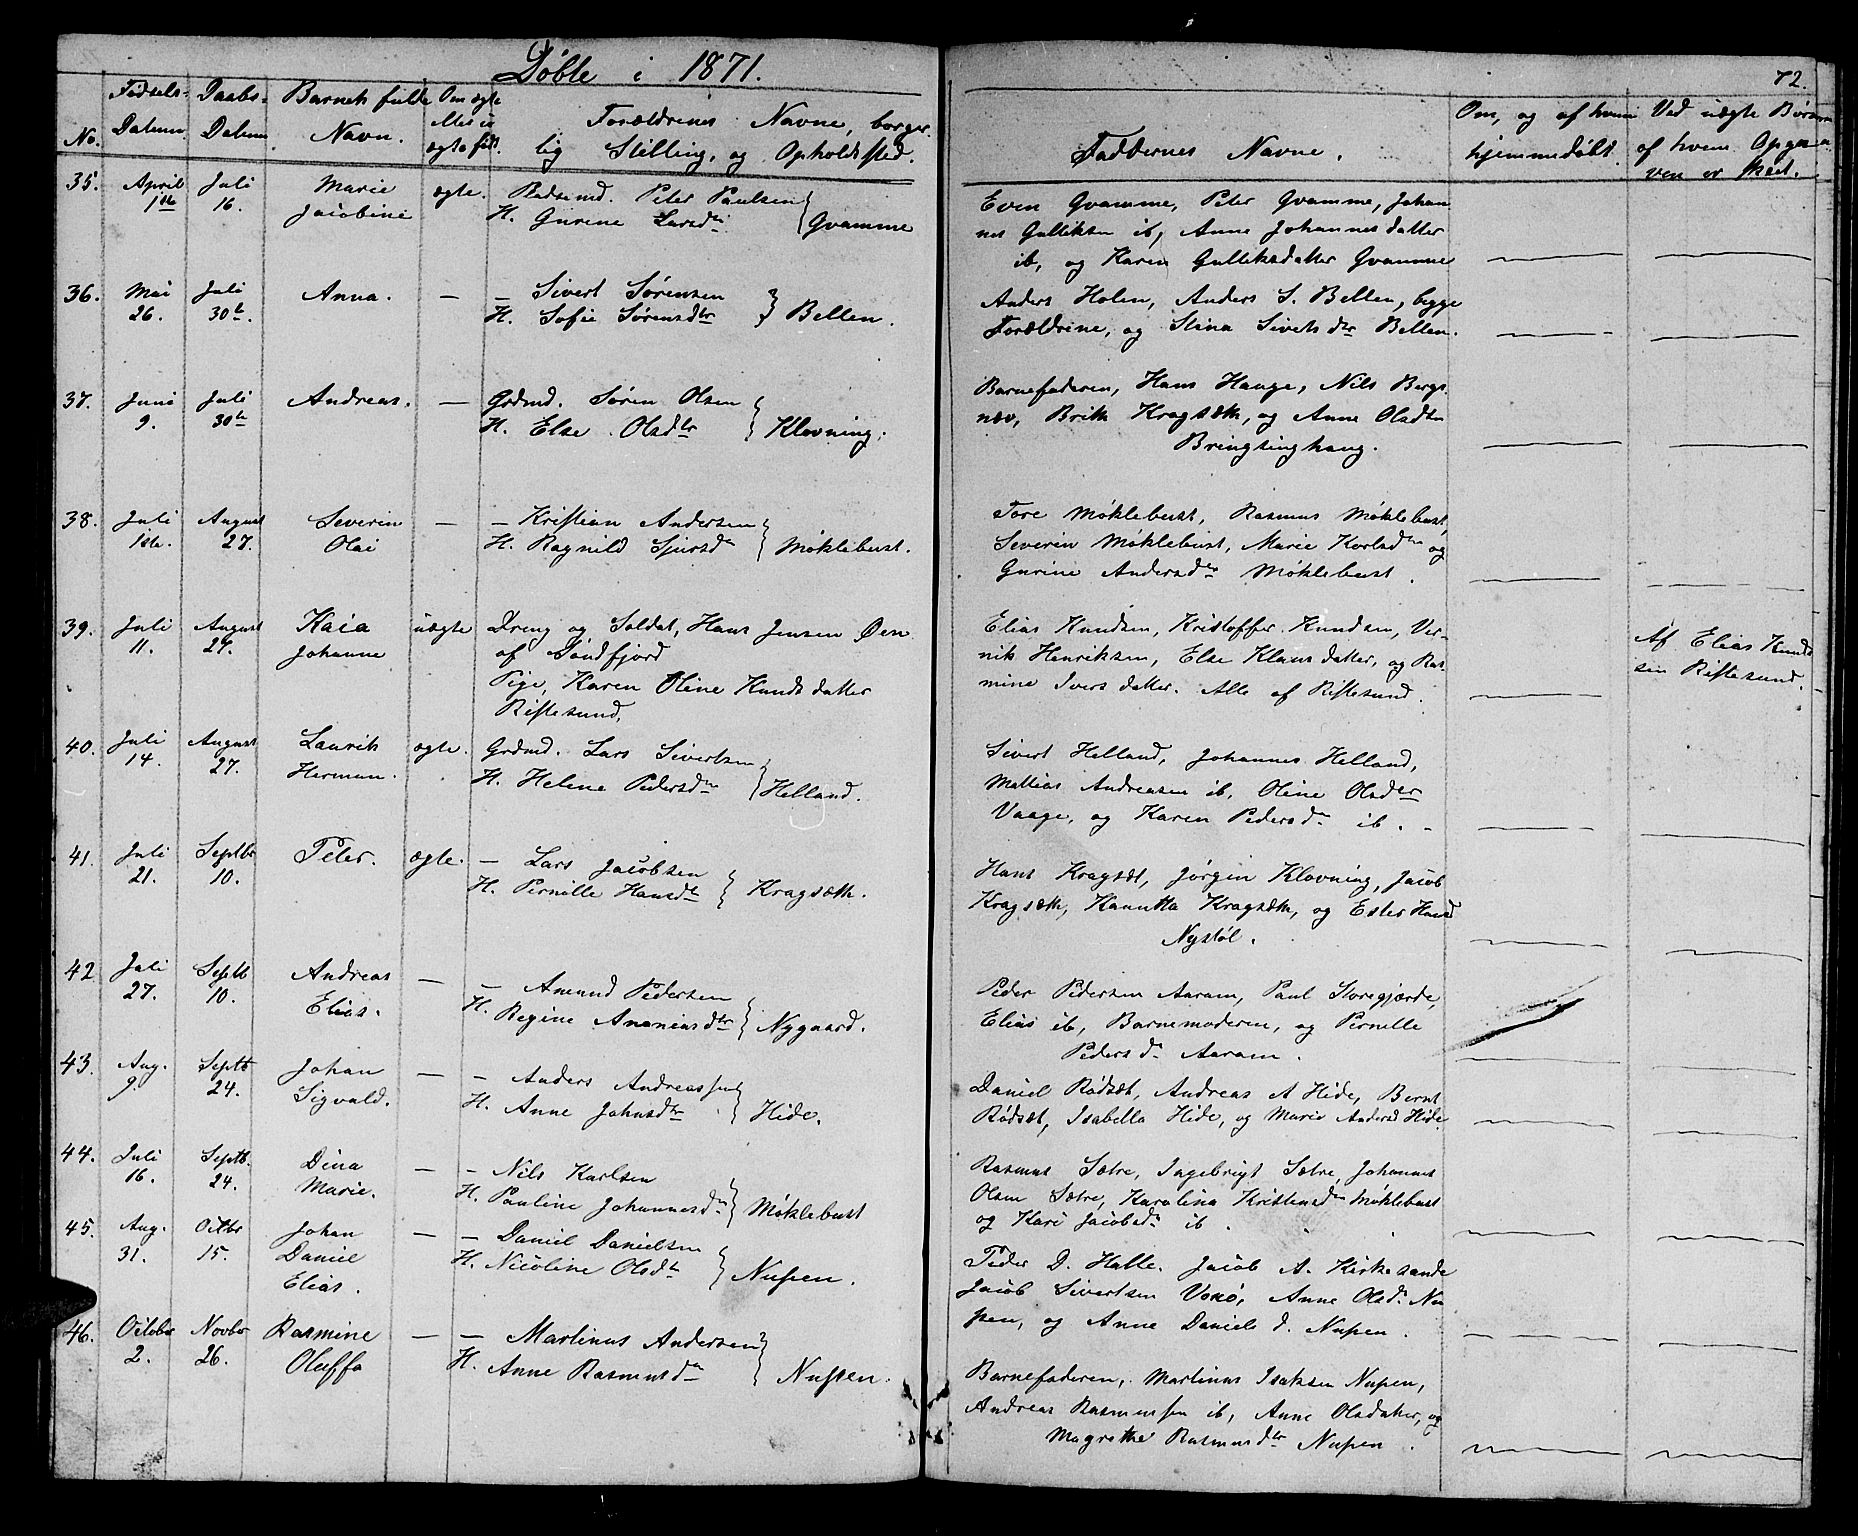 Døbte i 1871.
72.
No.
Fødsels-
Datum.
Daabs-
Datum
Barnets fulde
Navn.
Om ægte
eller u-
ægte født.
Forældrenes Navne, borger-
lig Stilling, og Opholdssted.
Faddernes Navne.
Om, og af hvem
hjemmedøbt.
Ved uægte Børn
af hvem Opga-
ven er skeet.
35. April Juli Marie ægte. Peter Paulsen
16. Jacobine H. Gurine Larsdr Gvamme
Even Gvamme, Peter Gvamme, Johan
nes Gulliksen ib, Anne Johannesdatter
ib, og Karen Gulliksdatter Gvamme
36. Mai Juli Anna. — — Sivert Sørensen
26. 30te. H. Sofie Sørensdtr Bellen.
Anders Holen, Anders S. Bellen, begge
Forældrine, og Stina Sivertsdtr Bellen.
37. Juni Juli Andreas. — Grdmd. Søren Olsen
9. 30te H. Else Olsdtr Klovning.
Barnefaderen, Hans Hauge, Nils Bergs
næv, Brith Kragsæth, og Anne Olsdtr
Bringsinghaug.
38. Juli August Severin — — Kristian Andersen
27. Olai H. Ragnild Sjursdr Møklebust.
Tore Møklebust, Rasmus Møklebust,
Severin Møklebust, Marie Korlsdtr og
Gurine Andersdtr Møklebust.
39. Juli August Kaia uægte Dreng og Soldat, Hans Jensen Øen
11. 27. Johanne af Søndfjord
Pige, Karen Oline Knudsdatter
Ristesund.
Elias Knudsen, Kristoffer Knudsen, Ver-
nik Henriksen, Else Klausdatter, og Ras
mine Iversdatter. Alle af Ristesund.
Af Elias Knud
sen Ristesund.
40. Juli August Laurits ægte. Grdmd. Lars Sivertsen
14. 27. Herman. H. Helene Pedersdr Helland.
Sivert Helland, Johannes Helland,
Mattias Andreasen ib, Oline Olsdtr
Vaage, og Karen Pedersdr ib.
41. Juli Septbr Peter. ægte. — Lars Jacobsen
21. 10. H. Pernille Hansdtr Kragsæth.
Hans Kragsæt, Jørgin Klovning, Jacob
Kragsæth, Kanutta Kragsæth, og Ester Hansd
Nystøl.
42 Juli Septb Andreas — — Amund Pedersen
27. 10. Elias. H. Regine Ananiasdtr Nygaard.
Peder Pedersen Aaram, Paul Storegjærde,
Elias ib, Barnemoderen, og Pernille
Pedersdr Aaram.
43. Aug. Septb Johan — — Anders Andreassen
9. 24. Sigvald. H. Anne Johnsdtr Hide.
Daniel Rødsæt, Andreas A Hide, Bernt
Rødsæt, Isabella Hide, og Marie Andersd Hide
44. Juli Septb. Dina — — Nils Karlsen
16. 24. Marie. H. Pauline Johannesdr Møklebust
Rasmus Sætre, Ingebrigt Sætre, Johannes
Olsen Sætre, Karolina Kristensdr Møklebust
og Kari Jacobsdr ib.
45. Aug. Octbr Johan — — Daniel Danielsen
31. 15. Daniel H. Nicoline Olsdtr Nupen.
Elias.
Peder D. Halle. Jacob A. Kirkesande
Jacob Sivertsen Voxø, Anne Olsdr Nu
pen, og Anne Daniels d. Nupen.
46. October Novbr Rasmine — — Martinus Andersen
2. 26. Oluffa H. Anne Rasmusdr Nupen.
Barnefaderen, Martinus Isaksen Nupen,
Andreas Rasmussen ib, Anne Olsdatter, og
Magrethe Rasmusdtr Nupen.